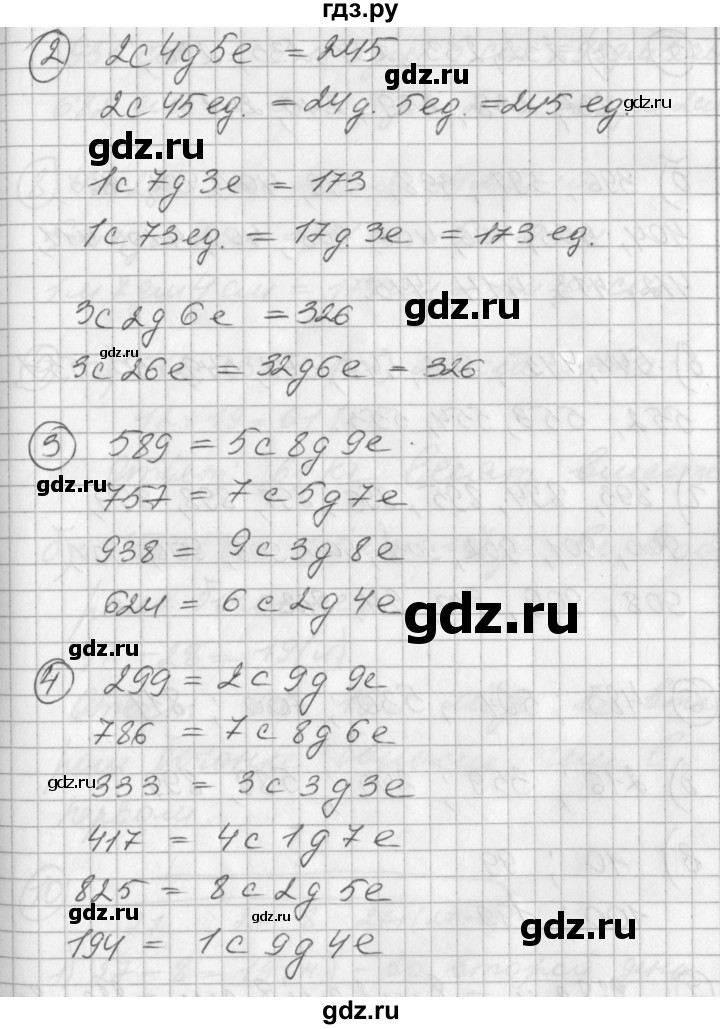 гдз.ру
2 2с 4д 5е = 245
2с 45ед. = 24д. 5ед. = 245 ед.
gdz.ru
gdz.ru
gdz.ru
1с 7д 3е = 173
1с 73ед. = 17д. 3е = 173 ед.
3с 2д 6е = 326
gdz.ru
gdz.ru
3с 26е = 32д6е = 326
3 589 = 5с 8д 9е.
gdz.ru
757 = 7с 5д 7е
938 = 9с 3д 8е
624 = 6с 2д 4е
gdz.ru
gdz.ru
4 299 = 2с 9д 9е
786 = 7с 8д 6е
gdz.ru
333 = 3с 3д 3е
417 = 4с 1д 7е
825 = 8с 2д 5е
gdz.ru
gdz.ru
gdz.ru
194 = 1с 9д 4е
gdz.ru